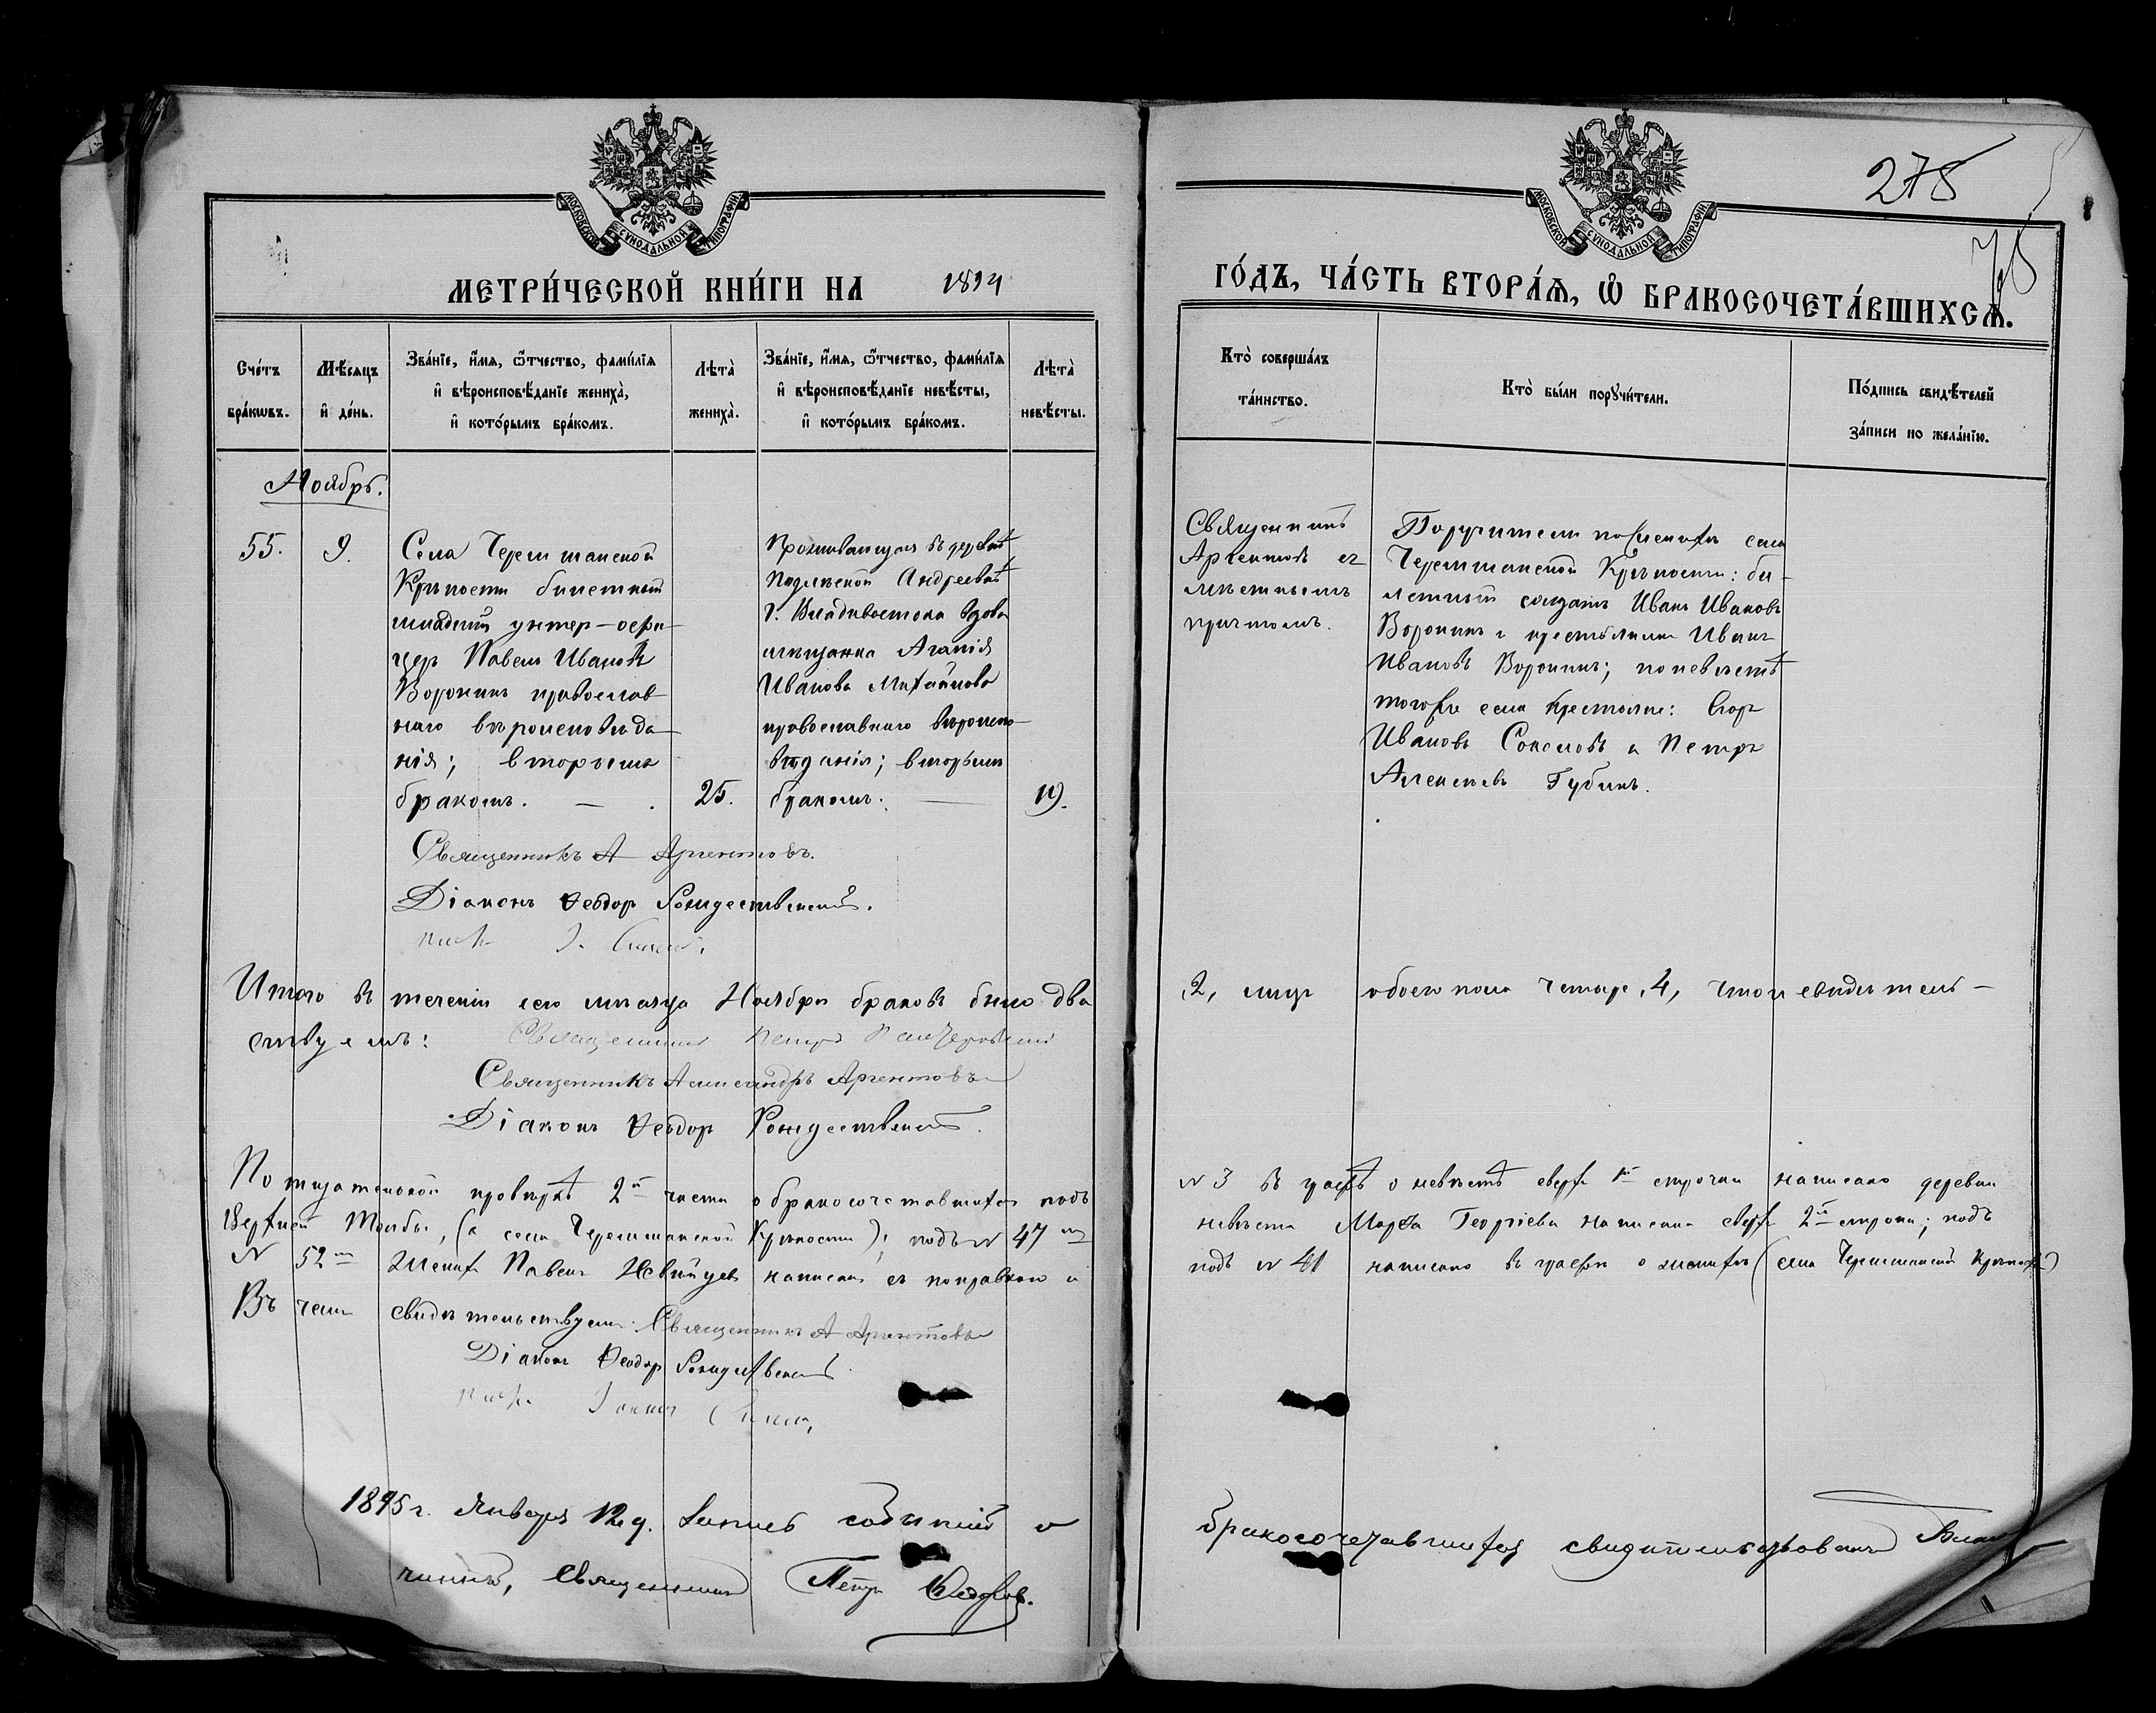 МОСКОВСКОЙ СУНОДАЛЬНОЙ ТИПОГРАФІИ
МЕТРИ́ЧЕСКОЙ КНИ́ГИ НА 1894
Сче́тъ бра́кѡвъ.
Мѣ́сяцъ и҆ де́нь.
Зва́нїе, и҆́мя, ѻ҆́тчество, фами́лїя и҆ вѣроисповѣ́данїе жениха̀, и҆ кото́рымъ бра́комъ.
Лѣта̀ жениха̀.
Зва́нїе, и҆́мя, ѻ҆́тчество, фами́лїя и҆ вѣроисповѣ́данїе невѣ́сты, и҆ кото́рымъ бра́комъ.
Лѣта̀ невѣ́сты.
Ноябрь.
55.
9.
Села Черемшанской
Крѣпости билетный
младшій унтер-офи-
церъ Павелъ Ивановъ
Воронинъ православ
наго вѣроисповѣда-
нія; вторымъ
бракомъ. —
25.
Проживающая въ деревнѣ
Андреевнѣ
г. Владивостока вдова
мѣщанка Агапія
Иванова Михайлова
православнаго вѣроиспо-
вѣданія; вторымъ
бракомъ. —
19.
Священникъ А Аргентовъ.
Діаконъ Ѳеодоръ Рождественскій.
Итого въ теченіи сего мѣсяца Ноября браковъ было два
ствуемъ: Священникъ Петръ
Священникъ Александръ Аргентовъ
Діаконъ Ѳеодоръ Рождественскій.
По тщательной провѣркѣ 2й части о бракосочетавшихся подъ
Верхней Толбы, (а села Черемшанской Крѣпости); подъ № 47
№ 52 женихъ Павелъ написанъ съ поправкою и
Въ чемъ свидѣтельствуемъ: Священникъ А Аргентовъ
Діаконъ Ѳеодоръ Рождественскій
1895 г. Января 12 д. Запись событій о
чинный, Священникъ Петръ
278
ГО́ДЪ, ЧА́СТЬ ВТОРА́Я, Ѡ҆ БРАКОСОЧЕТА́ВШИХСЯ.
Кто̀ соверша́лъ та́инство.
Кто̀ бы́ли порꙋчи́тели.
По́дпись свидѣ́телей за́писи по жела́нїю.
Священникъ
Аргентовъ съ
мѣстнымъ
причтомъ.
Поручители по женихѣ села
Черемшанской Крѣпости: би-
летный солдатъ Иванъ Ивановъ
Воронинъ и крестьянинъ Иванъ
Ивановъ Воронинъ; по невѣстѣ
тогоже села Крестьяне: Егоръ
Ивановъ Соколовъ и Петръ
Алексѣевъ Губинъ.
2, лицъ обоего пола четыре, 4, что и свидѣтель-
№ 3 въ графѣ о невѣстѣ сверхъ 1й строчки написано деревни
невѣста Марѳа Георгіева написана сверхъ 2й строки; подъ
подъ № 41 написано въ графѣ о женихѣ (села Черемшанской Крѣпости)
бракосочетавшихся свидѣтельствовалъ